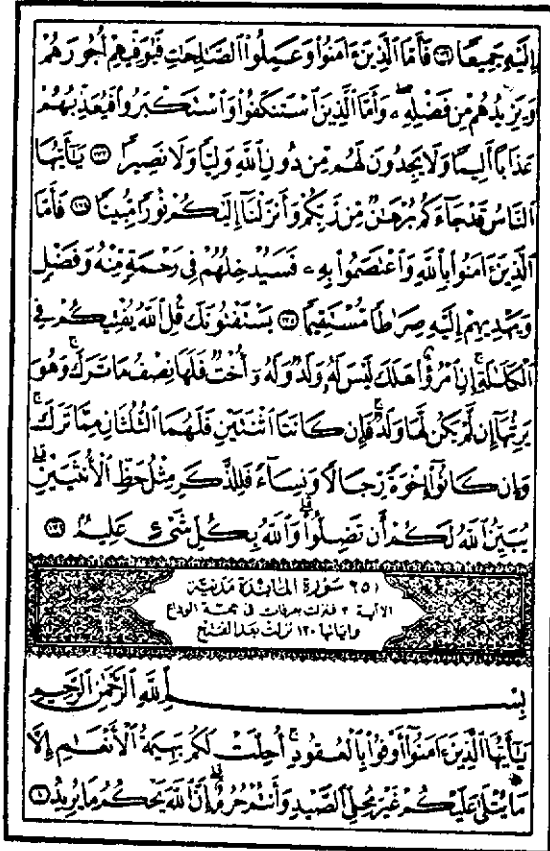 إِلَيْهِ جَمِيعًا ۝١٧٢ فَأَمَّا ٱلَّذِينَ ءَامَنُوا۟ وَعَمِلُوا۟ ٱلصَّـٰلِحَـٰتِ فَيُوَفِّيهِمْ أُجُورَهُمْ
وَيَزِيدُهُم مِّن فَضْلِهِۦ ۖ وَأَمَّا ٱلَّذِينَ ٱسْتَنكَفُوا۟ وَٱسْتَكْبَرُوا۟ فَيُعَذِّبُهُمْ
عَذَابًا أَلِيمًا وَلَا يَجِدُونَ لَهُم مِّن دُونِ ٱللَّهِ وَلِيًّا وَلَا نَصِيرًا ۝١٧٣ يَـٰٓأَيُّهَا
ٱلنَّاسُ قَدْ جَآءَكُم بُرْهَـٰنٌ مِّن رَّبِّكُمْ وَأَنزَلْنَآ إِلَيْكُمْ نُورًا مُّبِينًا ۝١٧٤ فَأَمَّا
ٱلَّذِينَ ءَامَنُوا۟ بِٱللَّهِ وَٱعْتَصَمُوا۟ بِهِۦ فَسَيُدْخِلُهُمْ فِى رَحْمَةٍ مِّنْهُ وَفَضْلٍ
وَيَهْدِيهِمْ إِلَيْهِ صِرَٰطًا مُّسْتَقِيمًا ۝١٧٥ يَسْتَفْتُونَكَ قُلِ ٱللَّهُ يُفْتِيكُمْ فِى
ٱلْكَلَـٰلَةِ ۚ إِنِ ٱمْرُؤٌا۟ هَلَكَ لَيْسَ لَهُۥ وَلَدٌ وَلَهُۥٓ أُخْتٌ فَلَهَا نِصْفُ مَا تَرَكَ ۚ وَهُوَ
يَرِثُهَآ إِن لَّمْ يَكُن لَّهَا وَلَدٌ ۚ فَإِن كَانَتَا ٱثْنَتَيْنِ فَلَهُمَا ٱلثُّلُثَانِ مِمَّا تَرَكَ ۚ
وَإِن كَانُوٓا۟ إِخْوَةً رِّجَالًا وَنِسَآءً فَلِلذَّكَرِ مِثْلُ حَظِّ ٱلْأُنثَيَيْنِ ۗ
يُبَيِّنُ ٱللَّهُ لَكُمْ أَن تَضِلُّوا۟ ۗ وَٱللَّهُ بِكُلِّ شَىْءٍ عَلِيمٌۢ ۝١٧٦
(٥) سورة المائدة مدنية
الا آية ٣ فنزلت بعرفات فى حجة الوداع
وآياتها ١٢٠ نزلت بعد الفتح
بِسْمِ ٱللَّهِ ٱلرَّحْمَـٰنِ ٱلرَّحِيمِ
يَـٰٓأَيُّهَا ٱلَّذِينَ ءَامَنُوٓا۟ أَوْفُوا۟ بِٱلْعُقُودِ ۚ أُحِلَّتْ لَكُم بَهِيمَةُ ٱلْأَنْعَـٰمِ إِلَّا
مَا يُتْلَىٰ عَلَيْكُمْ غَيْرَ مُحِلِّى ٱلصَّيْدِ وَأَنتُمْ حُرُمٌ ۗ إِنَّ ٱللَّهَ يَحْكُمُ مَا يُرِيدُ ۝١